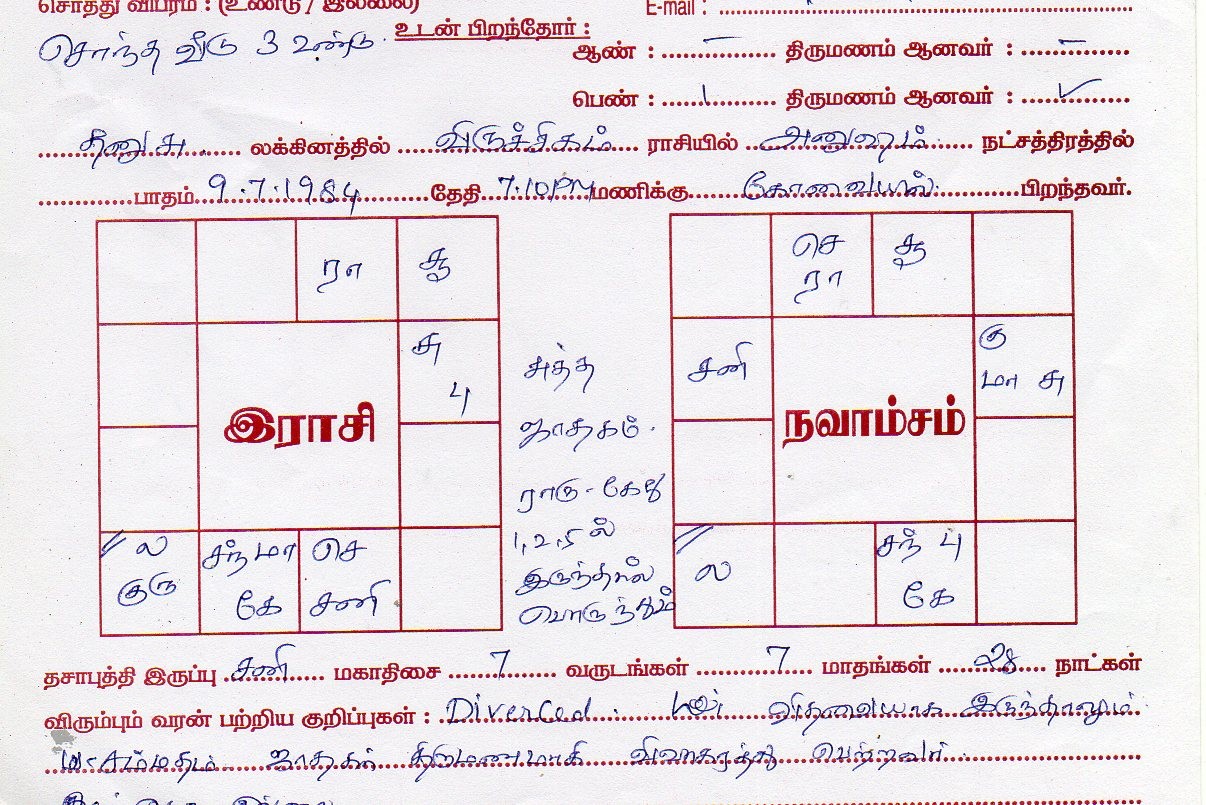 சொத்து விபரம் : (உண்டு / இல்லை)
E-mail :
சொந்த வீடு 3 உண்டு. உடன் பிறந்தோர் :
ஆண் : – திருமணம் ஆனவர் : –
பெண் : 1 திருமணம் ஆனவர் : ✓
தனுசு லக்கினத்தில் விருச்சிகம் ராசியில் அனுஷம் நட்சத்திரத்தில்
பாதம் 9.7.1984 தேதி 7.10 PM மணிக்கு கோவையில் பிறந்தவர்.
ரா சூ
சு
பு
இராசி
// ல சந் மா செ
குரு கே சனி
சுத்த
ஜாதகம்.
ராகு - கேது
1,2,5 ல்
இருந்தால்
பொருந்தும்
செ சூ
ரா
சனி
கு
மா சு
நவாம்சம்
// ல
சந் பு
கே
தசாபுத்தி இருப்பு சனி மகாதிசை 7 வருடங்கள் 7 மாதங்கள் 28 நாட்கள்
விரும்பும் வரன் பற்றிய குறிப்புகள் : Diverced. விதவையாக இருந்தாலும்
சம்மதம் ஜாதகர் திருமணமாகி விவாகரத்து பெற்றவர்